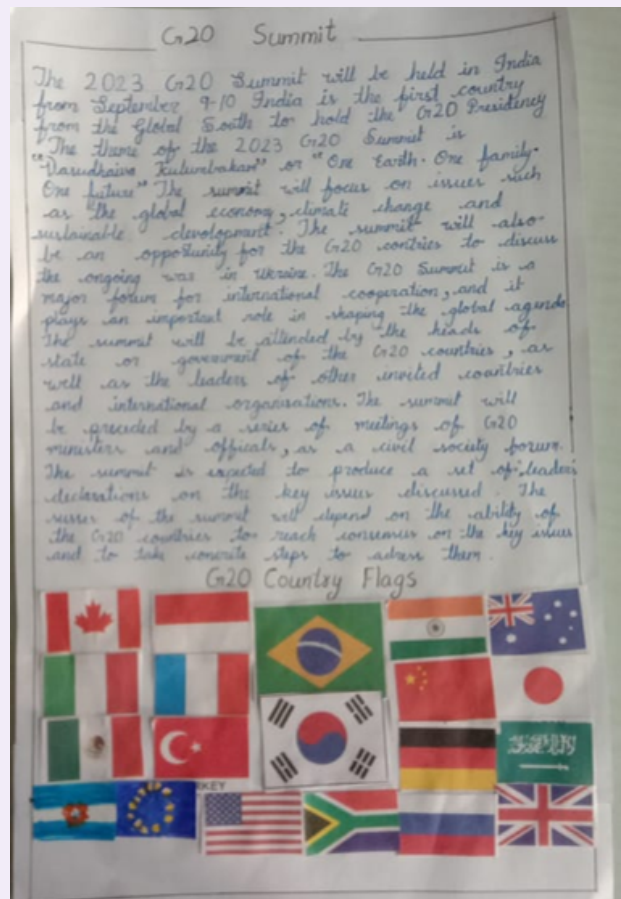 G20 Summit
The 2023 G20 Summit will be held in India
from September 9-10 India is the first country
from the Global South to hold the G20 Presidency
"The theme of the 2023 G20 Summit is
"Vasudhaiva Kutumbakam" or "One Earth. One family.
One future" The summit will focus on issues such
as the global economy, climate change and
sustainable development. The summit will also
be an opportunity for the G20 contries to discuss
the ongoing war in Ukraine. The G20 Summit is a
major forum for international cooperation, and it
plays an important role in shaping the global agenda
The summit will be attended by the heads of
state or government of the G20 countries, as
well as the leaders of other invited countries
and international organisations. The summit will
be preceded by a series of meetings of G20
ministers and officals, as a civil society forum.
The summit is expected to produce a set of leader's
declarations on the key issues discussed. The
of the summit will depend on the ability of
the G20 countries to reach consensus on the key issues
and to take concrete steps to adress them.
G20 Country Flags
RKEY